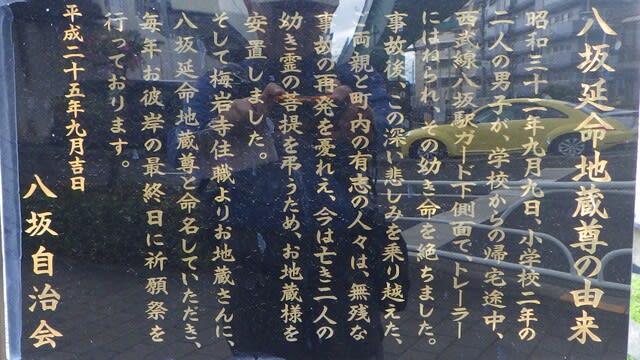 八坂延命地蔵尊の由来
昭和三十一年九月九日、小学校二年の
二人の男子が、学校からの帰宅途中、
西武線八坂駅ガード下側面で、トレーラー
にはねられ、その幼き命を絶ちました。
事故後、この深い悲しみを乗り越えた、
ご両親と町内の有志の人々は、無残な
事故の再発を憂れえ、今は亡き二人の
幼き霊の菩提を弔うため、お地蔵様を
安置しました。
そして梅岩寺住職よりお地蔵さんに、
八坂延命地蔵尊と命名していただき、
毎年お彼岸の最終日に祈願祭を
行っております。
平成二十五年九月吉日
八坂自治会